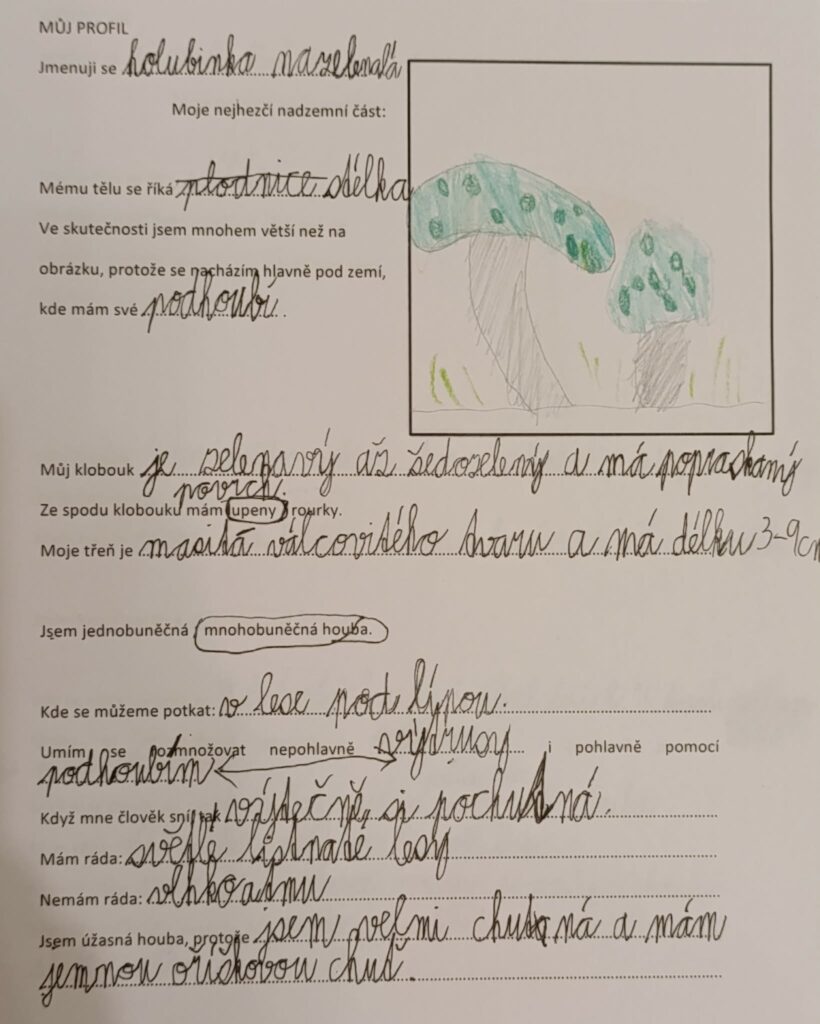 MŮJ PROFIL
Jmenuji se holubinka nazelenalá
Moje nejhezčí nadzemní část:
Mému tělu se říká plodnice stélka
Ve skutečnosti jsem mnohem větší než na
obrázku, protože se nacházím hlavně pod zemí,
kde mám své podhoubí.
Můj klobouk je zelenavý až šedozelený a má popraskaný
povrch.
Ze spodu klobouku mám lupeny / rourky.
Moje třeň je masitá válcovitého tvaru a má délku 3-9cm
Jsem jednobuněčná / mnohobuněčná houba.
Kde se můžeme potkat: v lese pod lípou.
Umím se rozmnožovat nepohlavně výtrusy i pohlavně pomocí
podhoubím
Když mne člověk sní, tak výtečně si pochutná.
Mám ráda: světlé listnaté lesy
Nemám ráda: vlhko a tmu
Jsem úžasná houba, protože jsem velmi chutná a mám
jemnou oříškovou chuť.